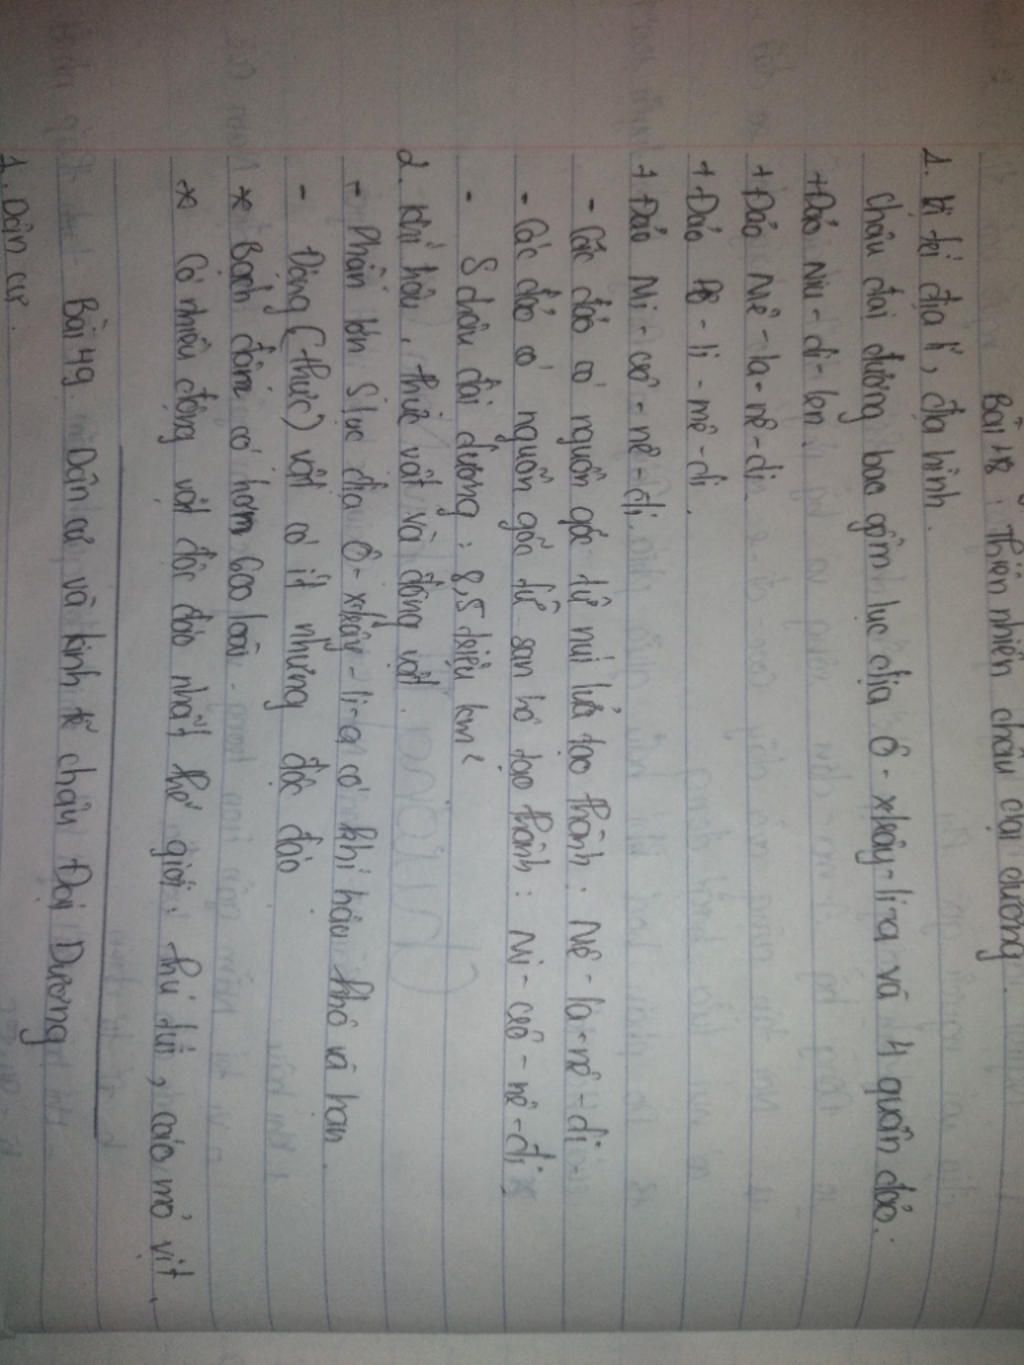 Bài 48: Thiên nhiên châu đại dương.
1. Vị trí địa lí, địa hình.
Châu đại dương bao gồm lục địa Ô-xtrây-li-a và 4 quần đảo:
+ Đảo Niu-di-len.
+ Đảo Mê-la-nê-di
+ Đảo Pô-li-nê-di.
+ Đảo Mi-crô-nê-di
- Các đảo có nguồn gốc từ núi lửa tạo thành. Mê-la-nê-di
- Các đảo có nguồn gốc từ san hô tạo thành: Mi-crô-nê-di
- S châu đại dương: 8,5 triệu km²
2. Khí hậu, thực vật và động vật.
- Phần lớn S lục địa Ô-xtrây-li-a có khí hậu khô và hạn.
- Động (thực) vật có ít nhưng độc đáo
* Bạch đàn có hơn 600 loài.
* Có nhiều động vật độc đáo nhất thế giới: thú túi, cáo mỏ vịt.
Bài 49. Dân cư và kinh tế châu Đại Dương
1. Dân cư.